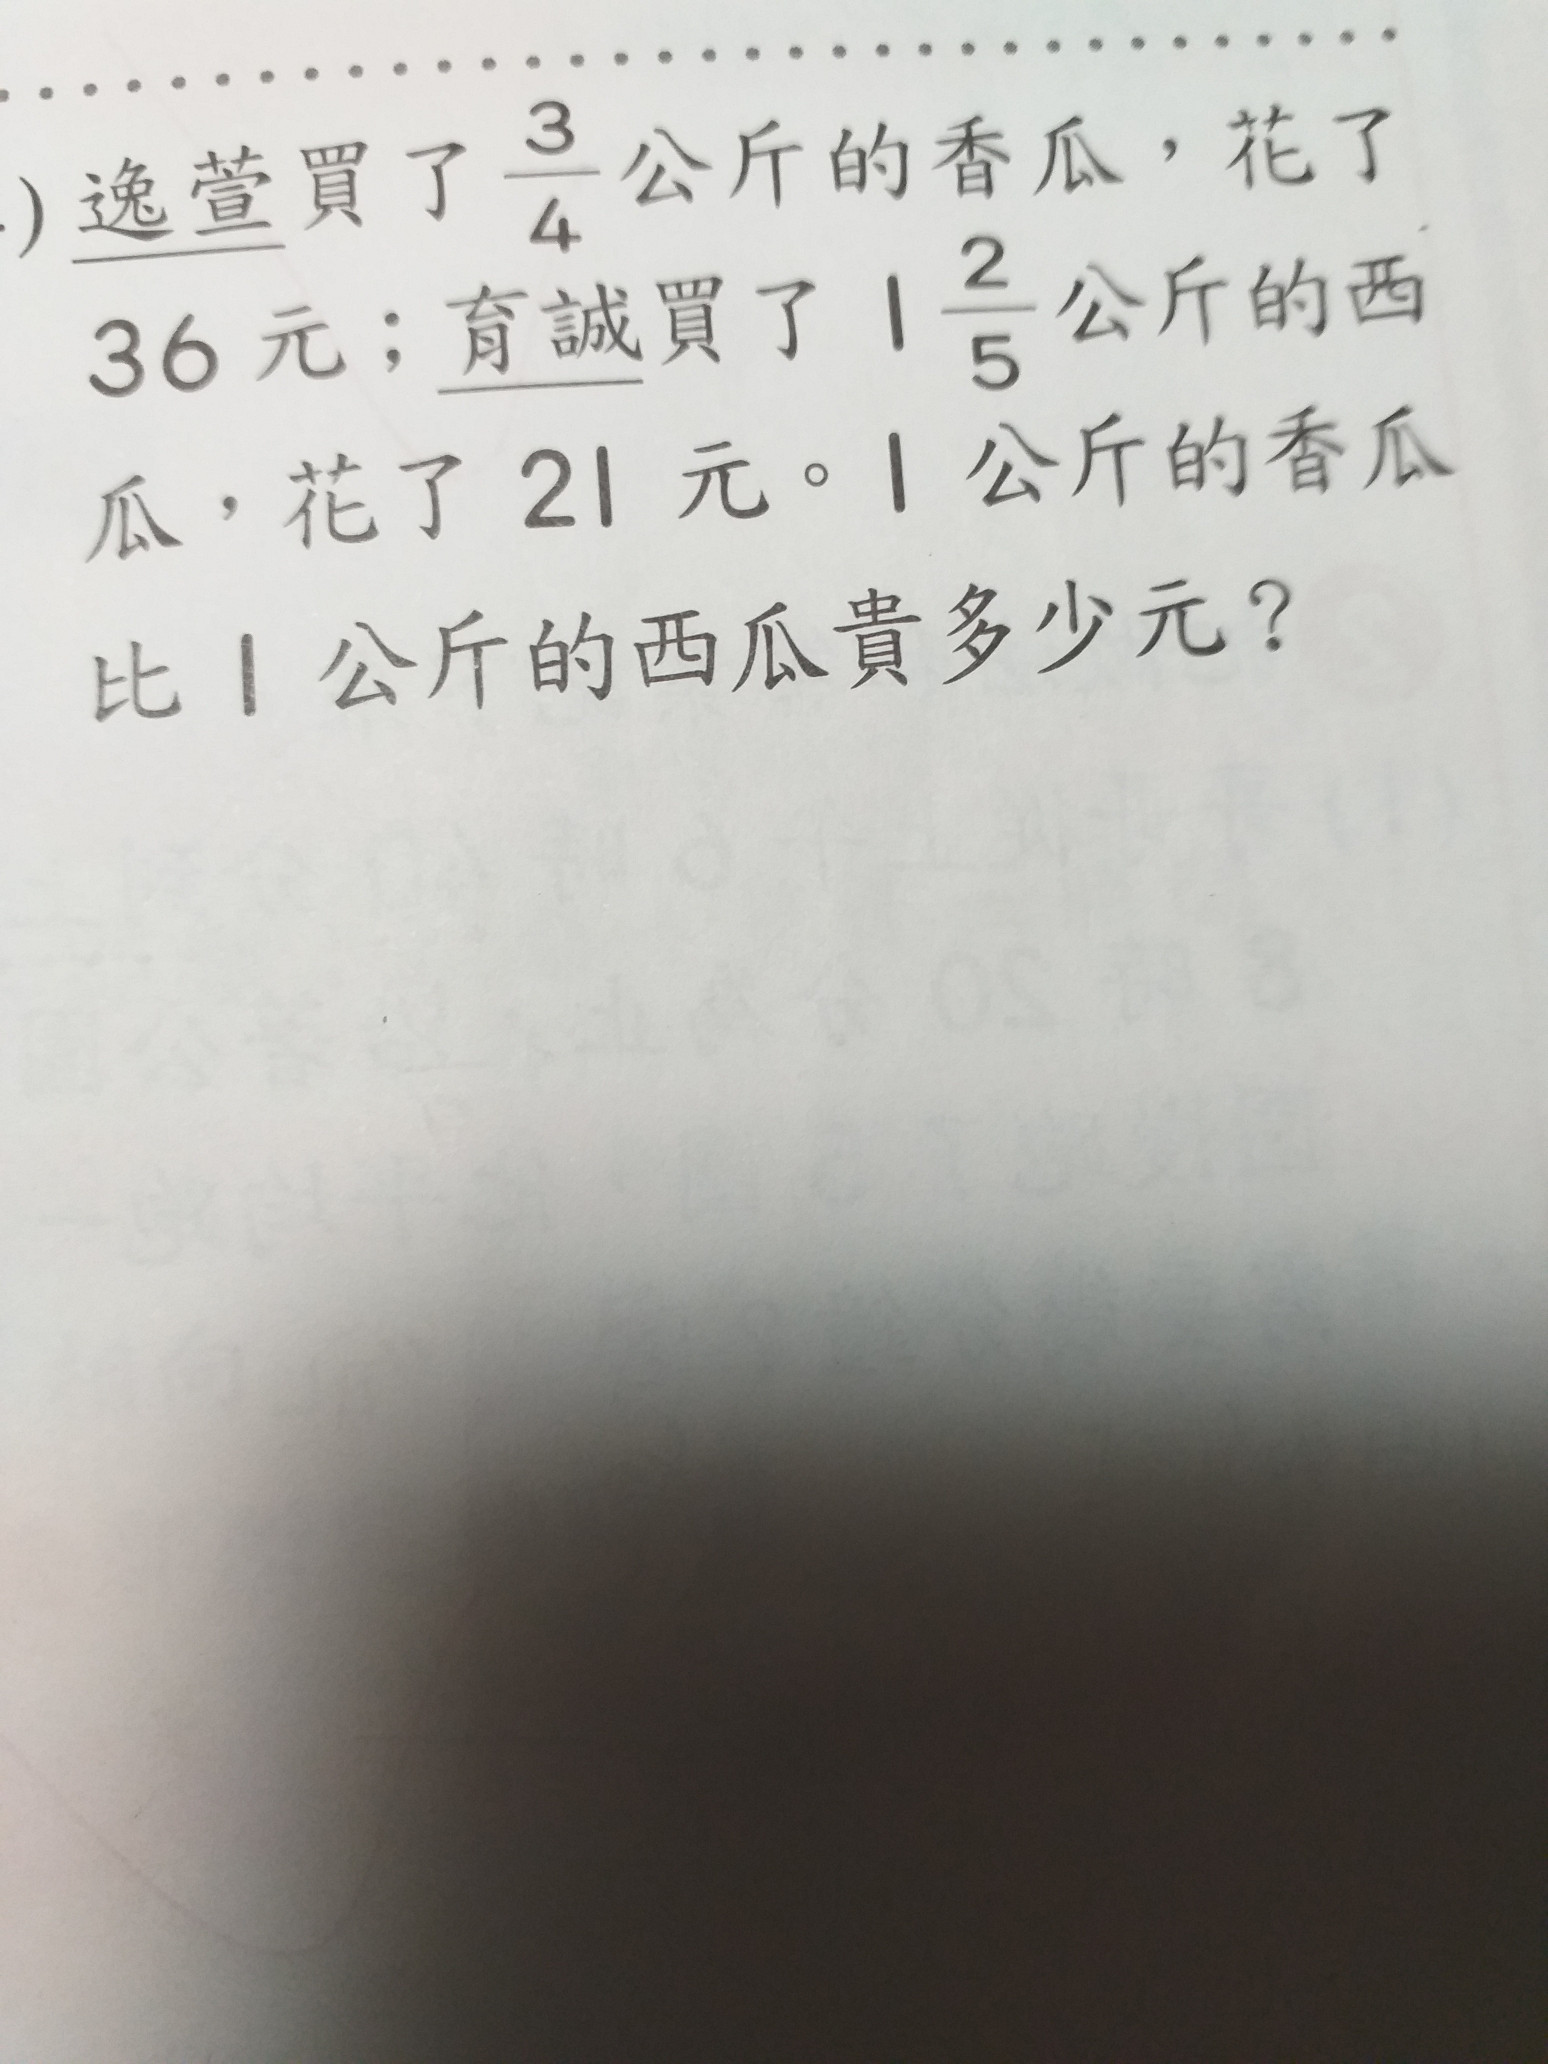 )逸萱買了3/4公斤的香瓜，花了
36元；育誠買了1 2/5公斤的西
瓜，花了21元。1公斤的香瓜
比1公斤的西瓜貴多少元？